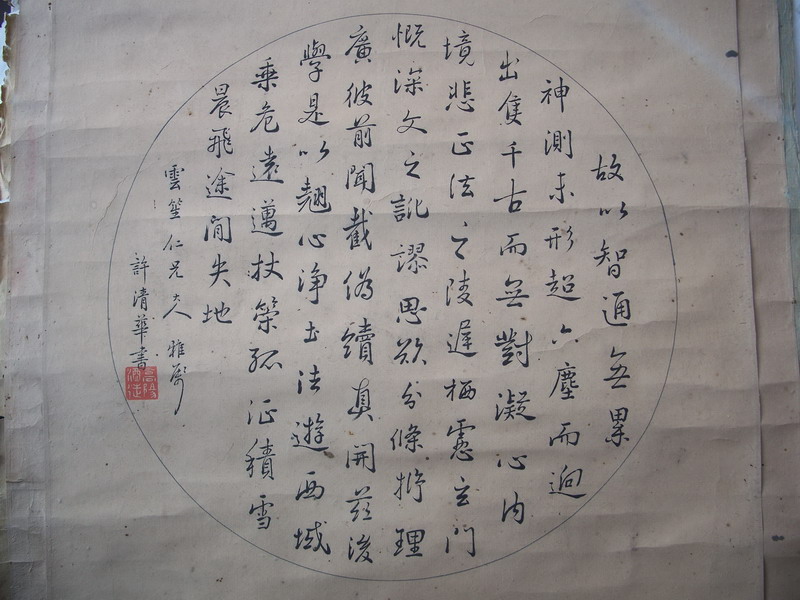 故以智通無累
神測未形超六塵而迥
出隻千古而無對凝心内
境悲正法之陵遲栖慮玄門
慨深文之訛謬思欲分條析理
廣彼前聞截偽續真開茲後
學是以翹心淨土法遊西域
乘危遠邁杖策孤征積雪
晨飛途間失地
雲笙仁兄大人雅屬
許清華書
高陽酒徒